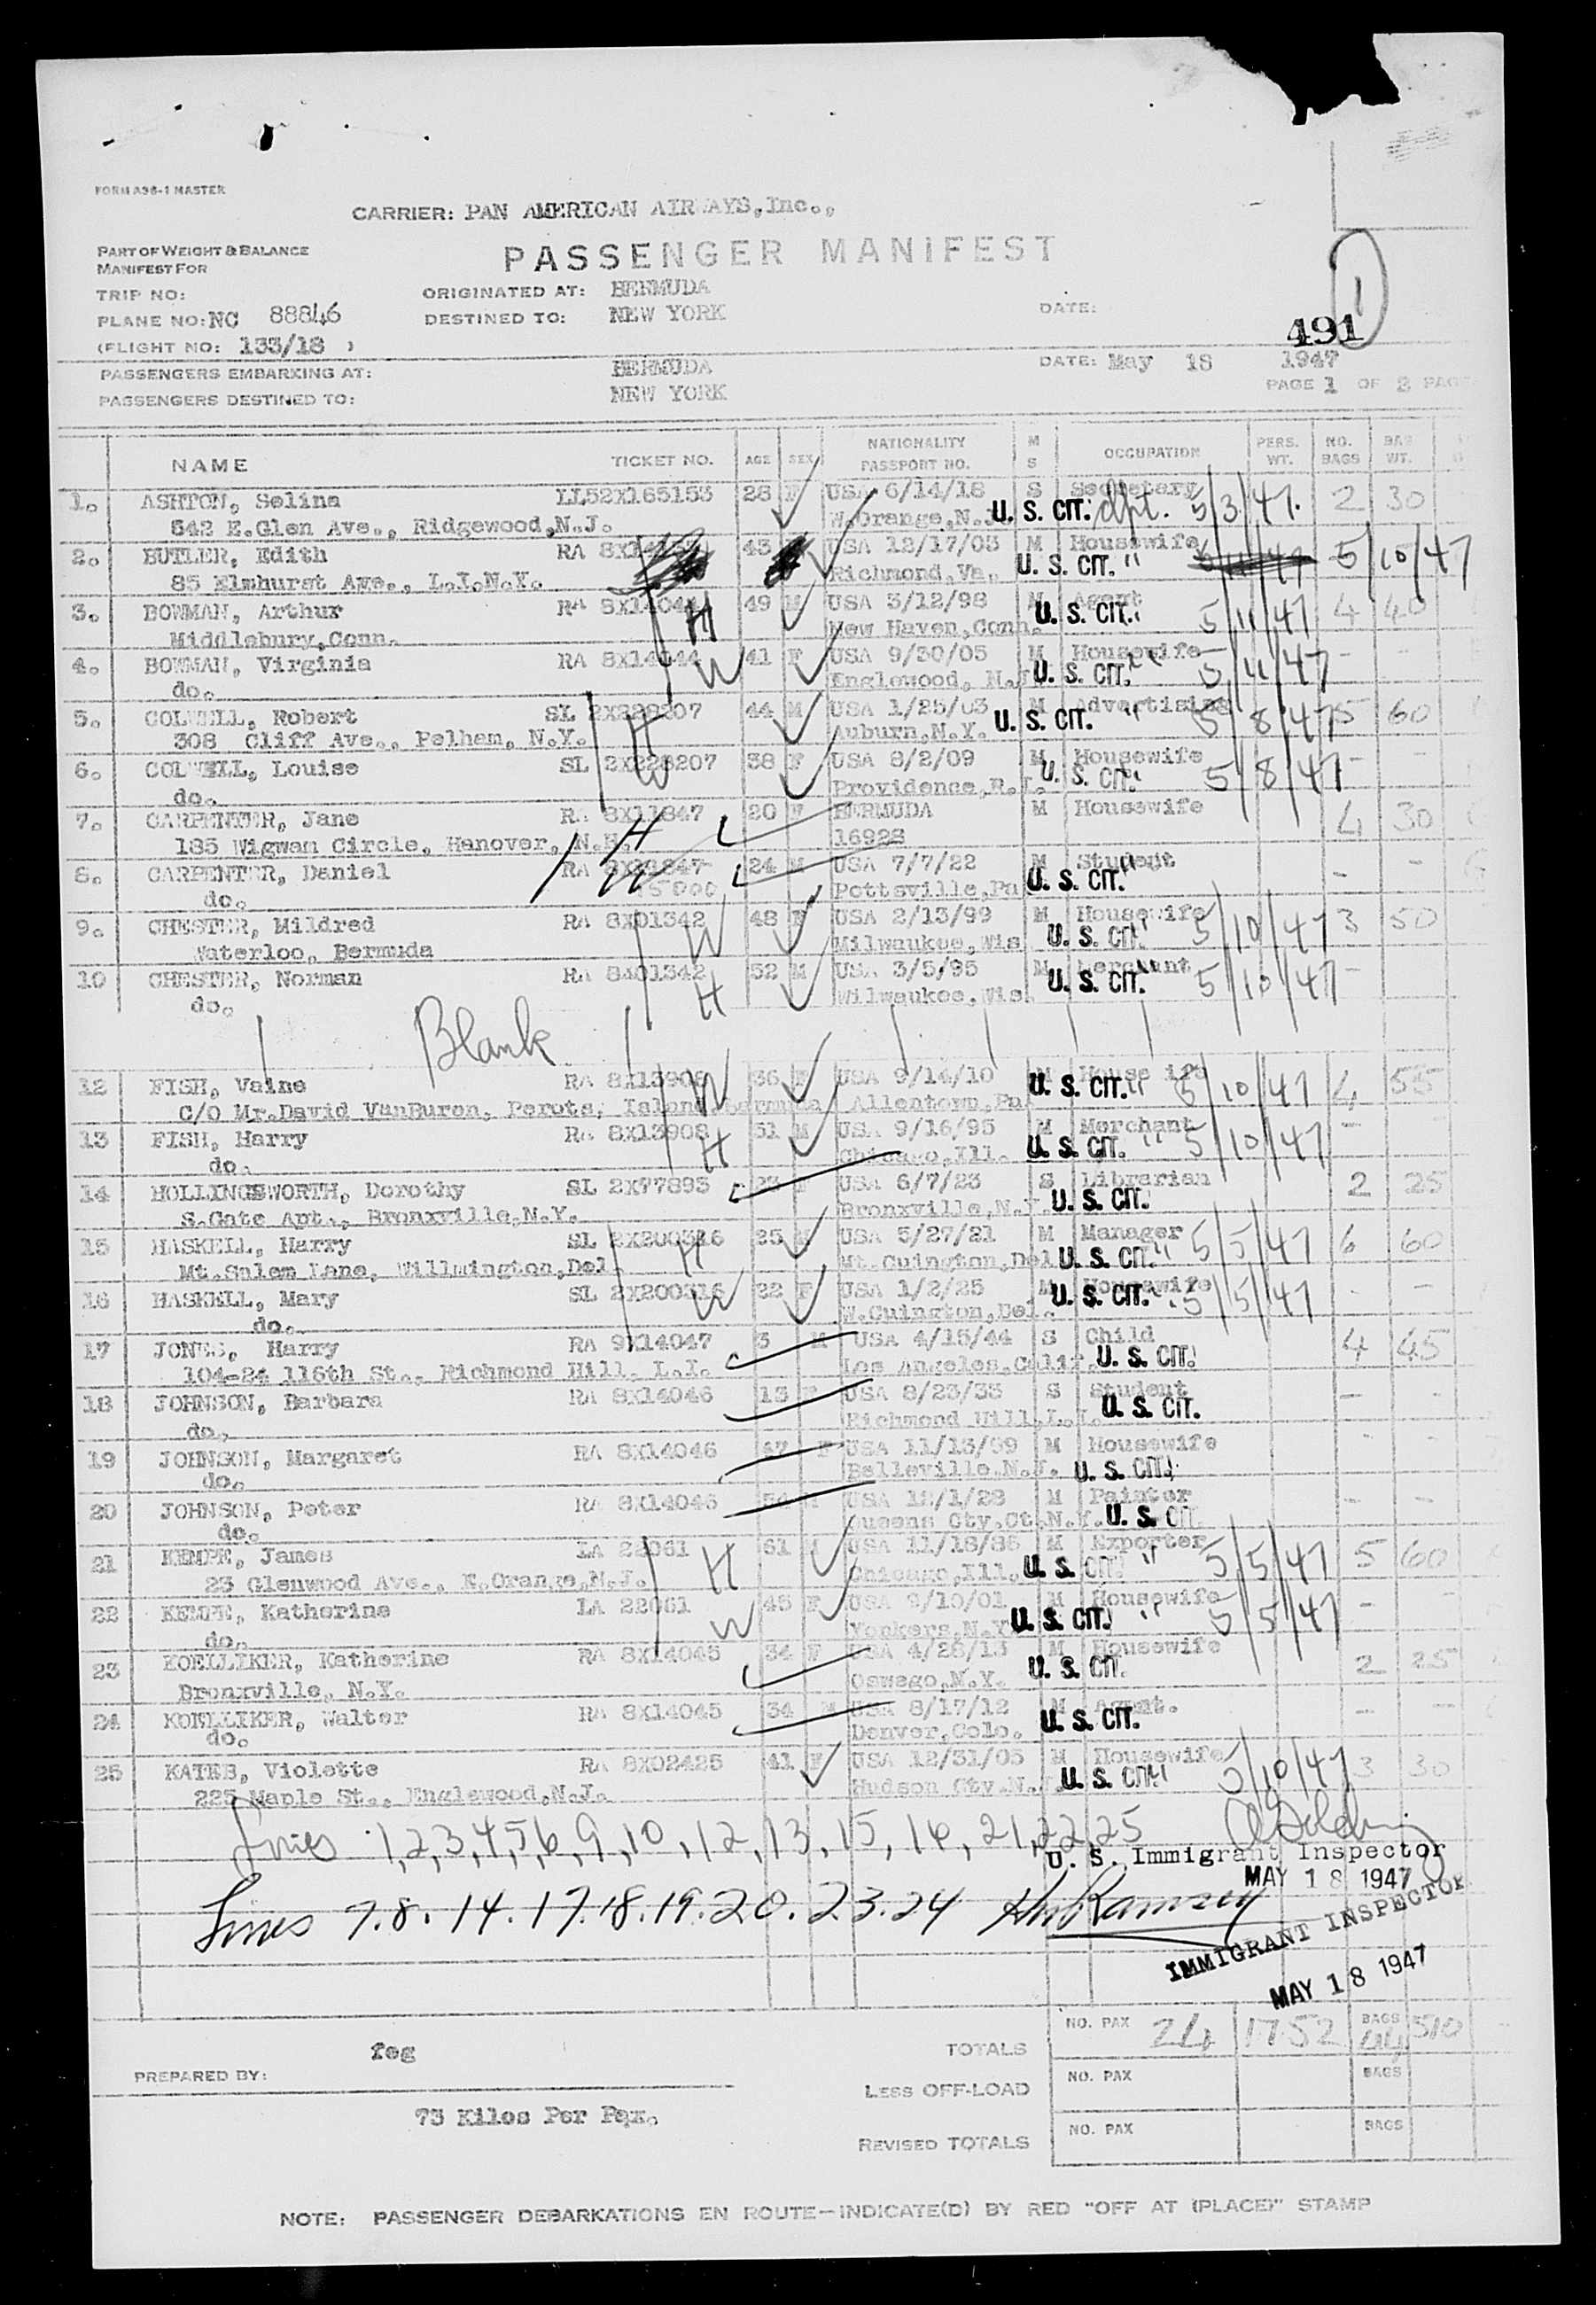 FORM A36-1 MASTER
CARRIER: PAN AMERICAN AIRWAYS,Inc.,
PART OF WEIGHT & BALANCE
MANIFEST FOR
PASSENGER MANIFEST
TRIP NO:
ORIGINATED AT: BERMUDA
DATE:
1
PLANE NO: NC 88846
DESTINED TO: NEW YORK
491
(FLIGHT NO: 133/18 )
PASSENGERS EMBARKING AT: BERMUDA
DATE: May 18 1947
PASSENGERS DESTINED TO: NEW YORK
PAGE 1 OF 2 PAG
NAME TICKET NO. AGE SEX NATIONALITY PASSPORT NO. M S OCCUPATION PERS. WT. NO. BAGS BAG WT.
1. ASHTON, Selina LL52X165153 28 F USA 6/14/18 S Secretary 2 30
542 E.Glen Ave., Ridgewood,N.J. W.Orange,N.J. U. S. CIT. dpt. 5/3/47.
2. BUTLER, Edith RA 43 USA 12/17/03 M Housewife
85 Elmhurst Ave., L.I.N.Y. Richmond,Va. U. S. CIT. " 5/10/47
3. BOWMAN, Arthur RA 8X14044 H 49 M USA 3/12/98 M Agent 4 40
Middlebury,Conn. New Haven,Conn. U. S. CIT. 5/11/47
4. BOWMAN, Virginia RA 8X14044 W 41 F USA 9/30/05 M Housewife - -
do. Englewood, N.J U. S. CIT. " 5/11/47
5. COLWELL, Robert SL 2X228207 H 44 M USA 1/25/03 M Advertising 5 60
308 Cliff Ave., Pelham, N.Y. Auburn,N.Y. U. S. CIT. " 5/8/47
6. COLWELL, Louise SL 2X228207 W 38 F USA 8/2/09 M Housewife -
do. Providence,R.I. U. S. CIT. " 5/8/47
7. CARPENTER, Jane RA 8X11847 H 20 F BERMUDA M Housewife 4 30
185 Wigwam Circle, Hanover, N.H. 16928
8. CARPENTER, Daniel RA 8X11847 W 24 M USA 7/7/22 M Student - -
do. Pottsville,Pa U. S. CIT.
9. CHESTER, Mildred RA 8X01342 W 48 F USA 2/13/99 M Housewife 3 50
Waterloo, Bermuda Milwaukee,Wis U. S. CIT. 5/10/47
10 CHESTER, Norman RA 8X01342 H 52 M USA 3/5/95 M Merchant -
do. Milwaukee,Wis. U. S. CIT. 5/10/47
Blank
12 FISH, Vaine RA 8X13908 W 36 F USA 9/14/10 M House ife 4 55
C/O Mr.David VanBuren, Perots, Island, Bermuda Allentown,Pa U. S. CIT. " 5/10/47
13 FISH, Harry RA 8X13908 H 51 M USA 9/16/95 M Merchant -
do. Chicago,Ill. U. S. CIT. " 5/10/47
14 HOLLINGSWORTH, Dorothy SL 2X77893 23 F USA 6/7/23 S Librarian 2 25
S.Gate Apt., Bronxville,N.Y. Bronxville,N.Y. U. S. CIT.
15 HASKELL, Harry SL 2X200316 H 25 M USA 5/27/21 M Manager 6 60
Mt.Salem Lane, Willmington,Del. Mt.Cuington,Del U. S. CIT. " 5/5/47
16 HASKELL, Mary SL 2X200316 W 22 F USA 1/2/25 M Housewife - -
do. W.Cuington,Del. U. S. CIT. " 5/5/47
17 JONES, Harry RA 9X14047 3 M USA 4/15/44 S Child 4 45
104-24 116th St., Richmond Hill, L.I. Los Angeles,Calif. U. S. CIT.
18 JOHNSON, Barbara RA 8X14046 13 F USA 8/23/33 S Student -
do. Richmond Hill,L.I. U. S. CIT.
19 JOHNSON, Margaret RA 8X14046 47 F USA 11/13/99 M Housewife
do. Belleville,N.J. U. S. CIT.
20 JOHNSON, Peter RA 8X14046 M USA 12/1/22 M Painter - -
do. Queens Cty.Ct.N.Y. U. S. CIT
21 KEMPE, James LA 22061 H 61 M USA 11/18/85 M Exporter 5 60
23 Glenwood Ave., E.Orange,N.J. Chicago,Ill. U. S. CIT. " 5/5/47
22 KEMPE, Katherine LA 22061 W 45 F USA 9/10/01 M Housewife - -
do. Yonkers,N.Y U. S. CIT. " 5/5/47
23 KOELLIKER, Katherine RA 8X14045 34 F USA 4/26/13 M Housewife 2 25
Bronxville, N.Y. Oswego,N.Y. U. S. CIT.
24 KOELLIKER, Walter RA 8X14045 34 M USA 8/17/12 M Agent. - -
do. Denver,Colo. U. S. CIT.
25 KATES, Violette RA 8X02425 41 F USA 12/31/05 M Housewife 3 30
225 Maple St., Englewood,N.J. Hudson Cty.N.J. U. S. CIT. 5/10/47
Lines 1,2,3,4,5,6,9,10,12,13,15,16,21,22,25
U. S. Immigrant Inspector
MAY 18 1947
Lines 7.8.14.17.18.19.20.23.24 Ramsey
IMMIGRANT INSPECTOR
MAY 18 1947
TOTALS NO. PAX 24 1752 BAGS 44 510
feg
PREPARED BY:
LESS OFF-LOAD NO. PAX BAGS
73 Kilos Per Pax.
REVISED TOTALS NO. PAX BAGS
NOTE: PASSENGER DEBARKATIONS EN ROUTE—INDICATE(D) BY RED "OFF AT (PLACE)" STAMP